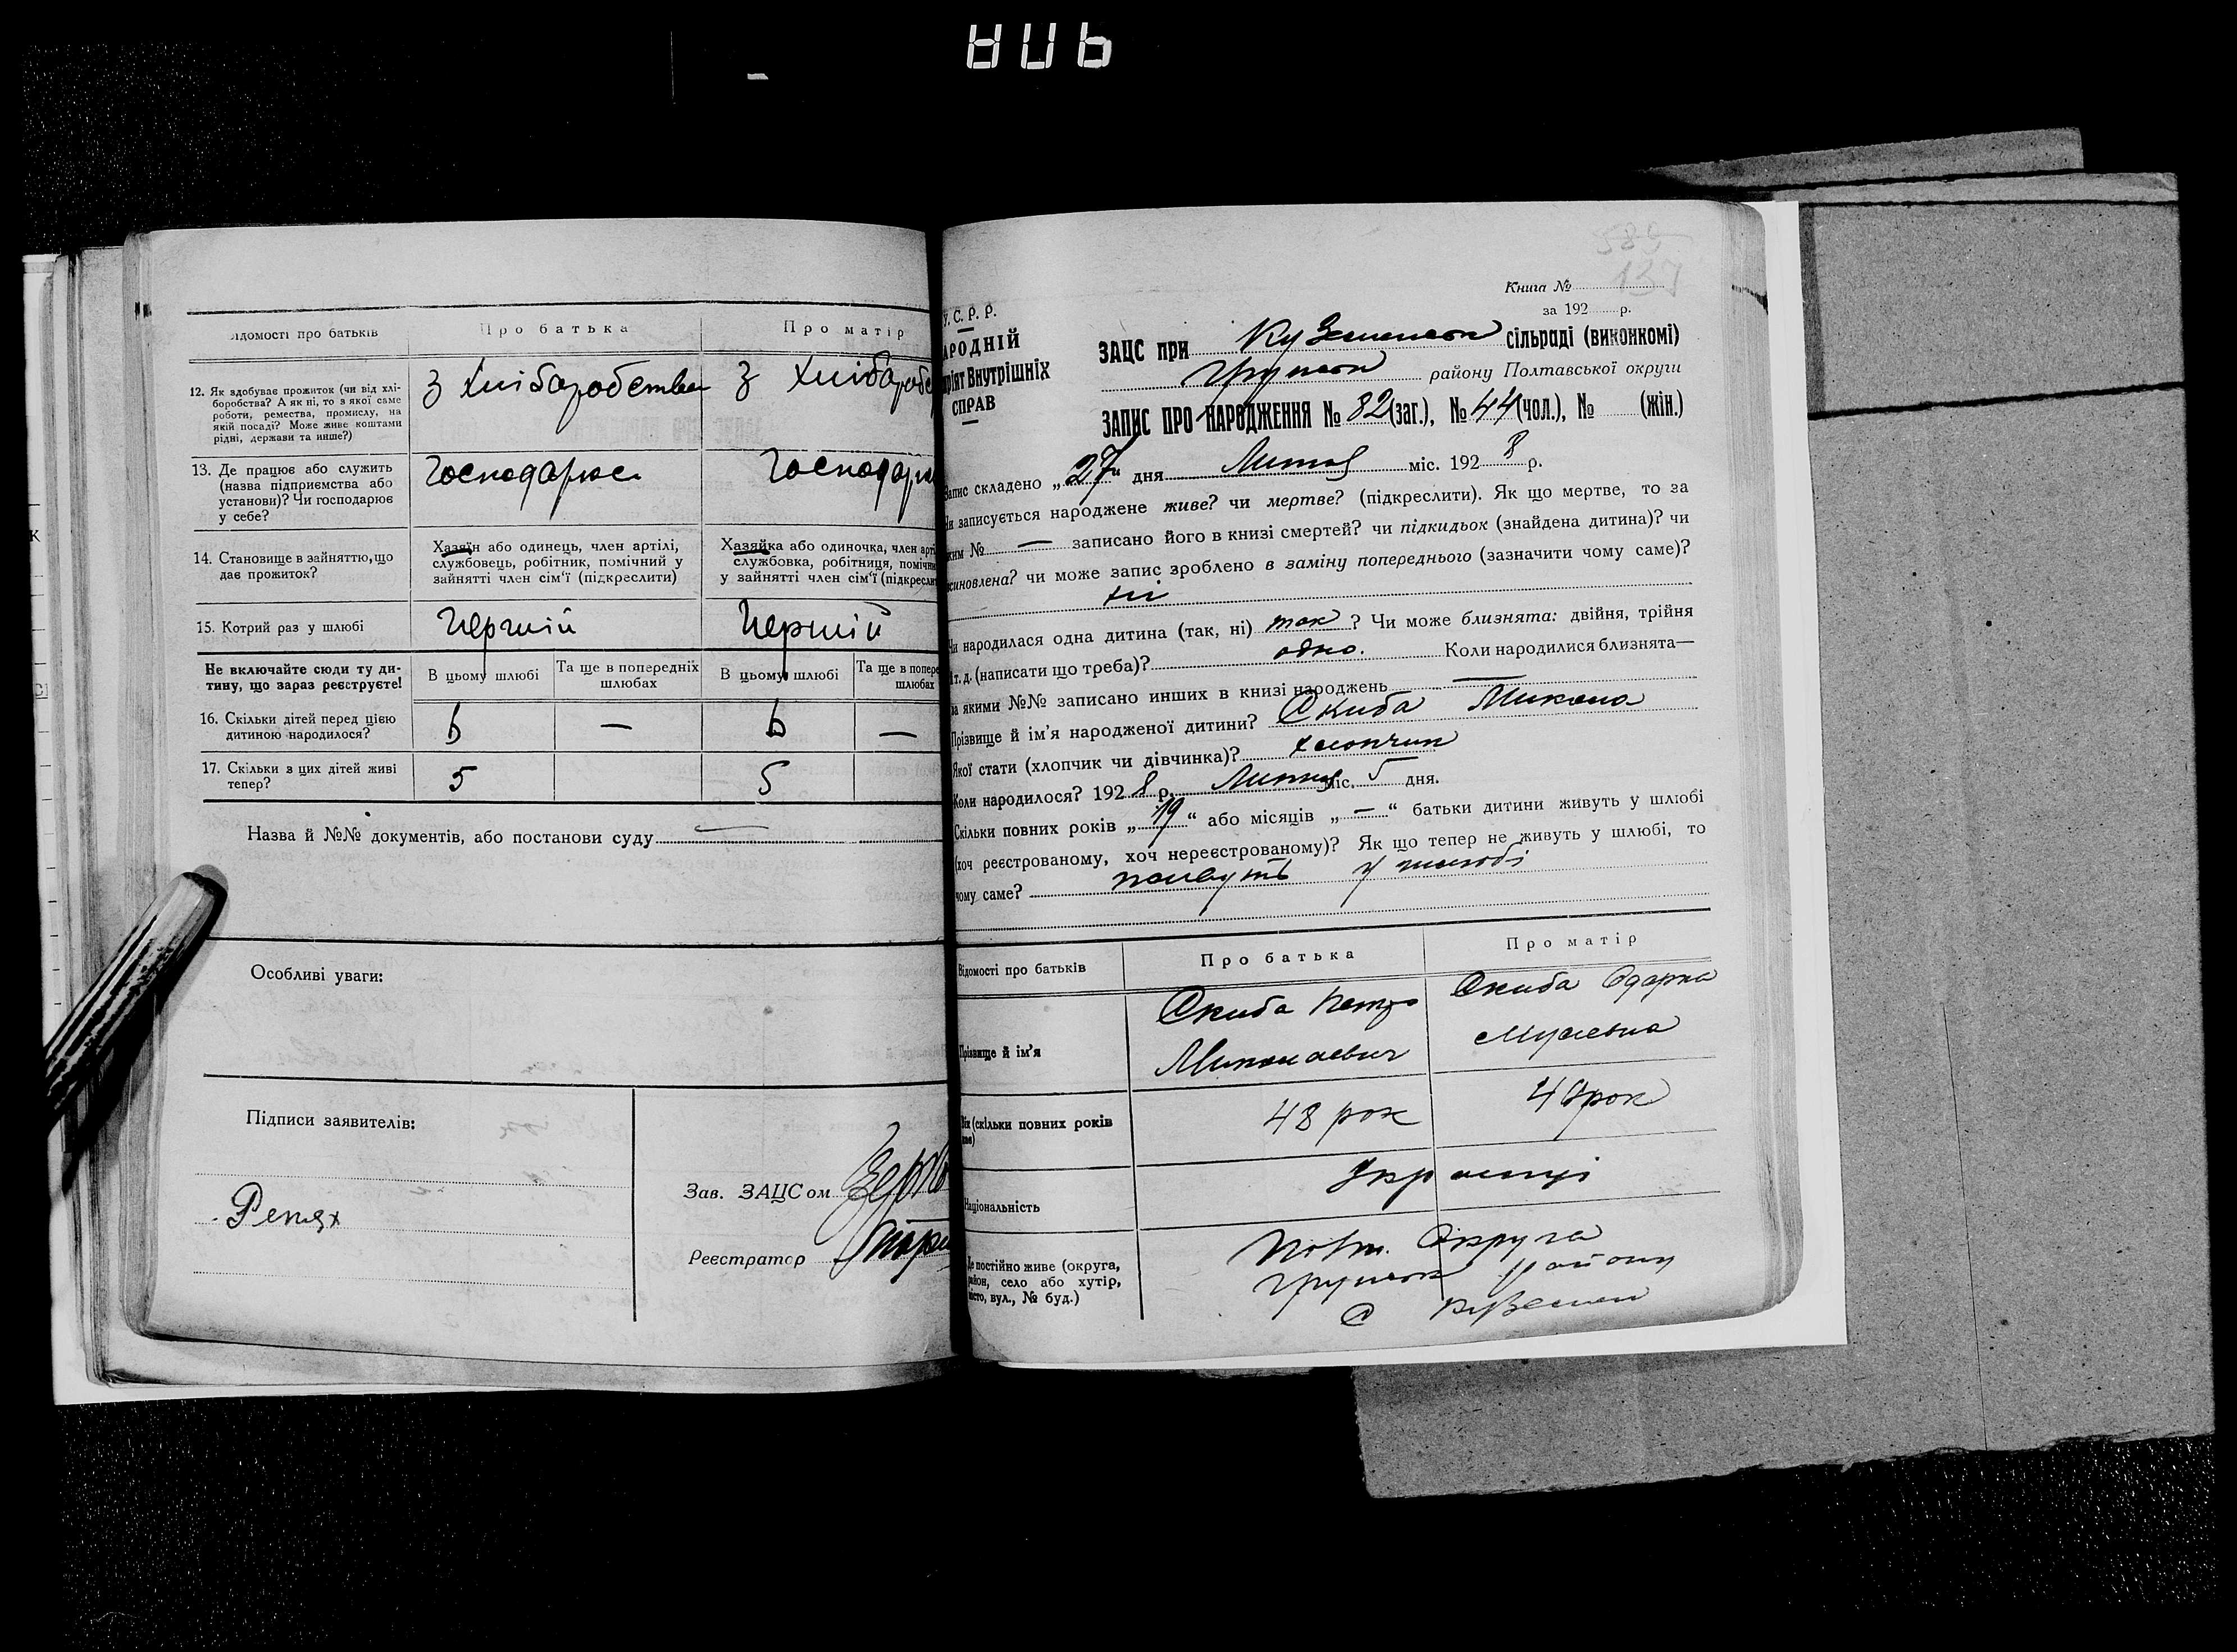 Відомості про батьків
Про батька
Про матір
12. Як здобуває прожиток (чи від хлі-
боробства? А як ні, то з якої саме
роботи, ремества, промислу, на
якій посаді? Може живе коштами
рідні, держави та инше?)
З хліборобства
З
13. Де працює або служить
(назва підприємства або
установи)? Чи господарює
у себе?
Господарює
14. Становище в зайняттю, що
дає прожиток?
Хазяїн або одинець, член артілі,
службовець, робітник, помічний у
зайнятті член сім'ї (підкреслити)
Хазяйка або одиночка, член арті
службовка, робітниця, помічн
у зайнятті член сім'ї (підкресли
15. Котрий раз у шлюбі
Перший
Перший
Не включайте сюди ту ди-
тину, що зараз реєструєте!
В цьому шлюбі
Та ще в попередніх
шлюбах
В цьому шлюбі
Та ще в попере
шлюбах
16. Скільки дітей перед цією
дитиною народилося?
6
—
6
—
17. Скільки з цих дітей живі
тепер?
5
5
Назва й №№ документів, або постанови суду —
Особливі уваги:
Підписи заявителів:
Репях
Зав. ЗАЦСом
Реєстратор
Книга №
137
за 192 р.
У. С. Р. Р.
АРОДНІЙ
ріят Внутрішніх
СПРАВ
ЗАЦС при сільраді (виконкомі)
району Полтавської округи
ЗАПИС ПРО НАРОДЖЕННЯ № 82 (заг.), № 44 (чол.), № (жін.)
Запис складено „27“ дня Лютой міс. 1928 р.
Чи записується народжене живе? чи мертве? (підкреслити). Як що мертве, то за
яким № — записано його в книзі смертей? чи підкидьок (знайдена дитина)? чи
усиновлена? чи може запис зроблено в заміну попереднього (зазначити чому саме)?
ні
Чи народилася одна дитина (так, ні) так ? Чи може близнята: двійня, трійня
й т. д. (написати що треба)? одно. Коли народилися близнята—
за якими №№ записано инших в книзі народжень —
Прізвище й ім'я народженої дитини? Скиба Микола
Якої стати (хлопчик чи дівчинка)? хлопчик
Коли народилося? 1928 р. Лютой міс. 5 дня.
Скільки повних років „19“ або місяців „—“ батьки дитини живуть у шлюбі
(хоч реєстрованому, хоч нереєстрованому)? Як що тепер не живуть у шлюбі, то
чому саме? у шлюбі
Відомості про батьків
Про батька
Про матір
Прізвище й ім'я
Скиба Петро
Миколаевич
Скиба Одарка
Вік (скільки повних років
має)
48 рок
рок
Національність
Українці
Де постійно живе (округа,
район, село або хутір,
місто, вул., № буд.)
Полт. Округа
району
с